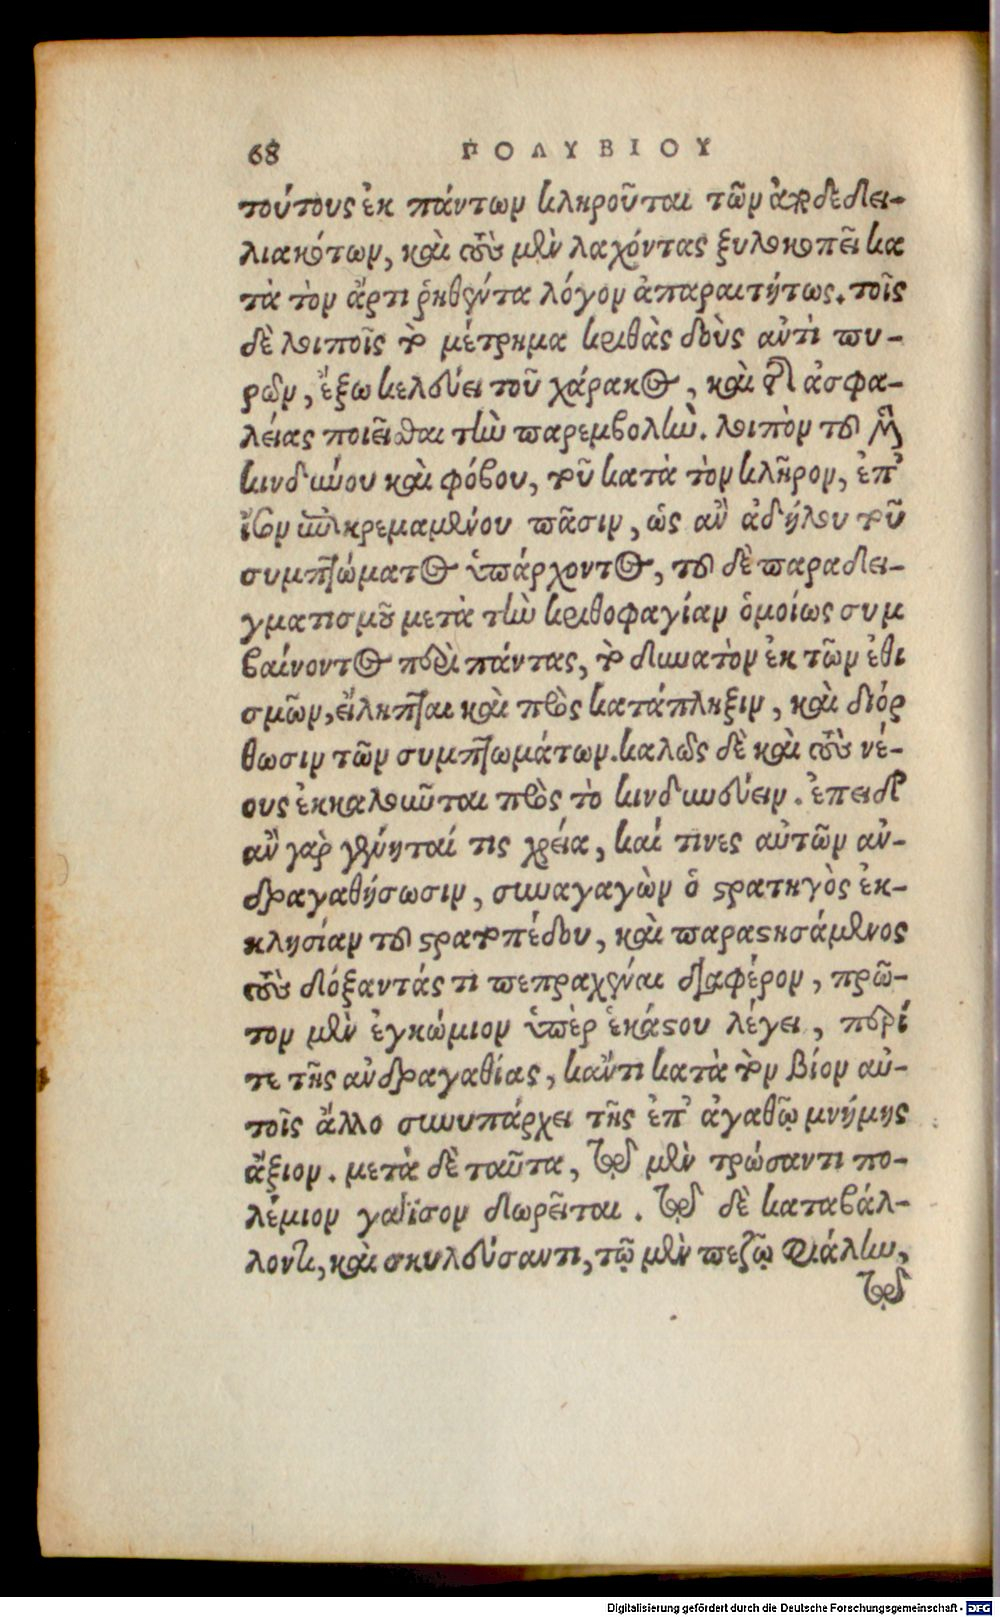 68 ΠΟΛΥΒΙΟΥ
τούτους ἐκ πάντων κληροῦται τῶν ἀποδεδει-
λιακότων, καὶ τοὺς μὲν λαχόντας ξυλοκοπεῖ κα
τὰ τὸν ἄρτι ῥηθέντα λόγον ἀπαραιτήτως. τοῖς
δὲ λοιποῖς τὸ μέτρημα κριθὰς δοὺς ἀντὶ πυ-
ρῶν, ἔξω κελεύει τοῦ χάρακος, καὶ τῆς ἀσφα-
λείας ποιεῖσθαι τὴν παρεμβολήν. λοιπὸν τοῦ μὲν
κινδύνου καὶ φόβου, τοῦ κατὰ τὸν κλῆρον, ἐπ᾽
ἴσον ἐπικρεμαμένου πᾶσιν, ὡς ἂν ἀδήλου τοῦ
συμπτώματος ὑπάρχοντος, τοῦ δὲ παραδει-
γματισμοῦ μετὰ τὴν κριθοφαγίαν ὁμοίως συμ
βαίνοντος περὶ πάντας, τὸ δυνατὸν ἐκ τῶν ἐθι
σμῶν, εἴληπται καὶ πρὸς κατάπληξιν, καὶ διόρ
θωσιν τῶν συμπτωμάτων. καλῶς δὲ καὶ τοὺς νέ-
ους ἐκκαλοῦνται πρὸς τὸ κινδυνεύειν. ἐπειδ
ἂν γὰρ γένηταί τις χρεία, καί τινες αὐτῶν ἀν-
δραγαθήσωσιν, συναγαγὼν ὁ στρατηγὸς ἐκ-
κλησίαν τοῦ στρατοπέδου, καὶ παραστησάμενος
τοὺς δόξαντάς τι πεπραχέναι διαφέρον, πρῶ-
τον μὲν ἐγκώμιον ὑπὲρ ἑκάστου λέγει, περί
τε τῆς ἀνδραγαθίας, κἄν τι κατὰ τὸν βίον αὐ-
τοῖς ἄλλο συνυπάρχει τῆς ἐπ᾽ ἀγαθῷ μνήμης
ἄξιον. μετὰ δὲ ταῦτα, τῷ μὲν τρώσαντι πο-
λέμιον γαῖσον δωρεῖται. τῷ δὲ καταβάλ-
λοντι, καὶ σκυλεύσαντι, τῷ μὲν πεζῷ φιάλην,
τῷ
Digitalisierung gefördert durch die Deutsche Forschungsgemeinschaft - DFG